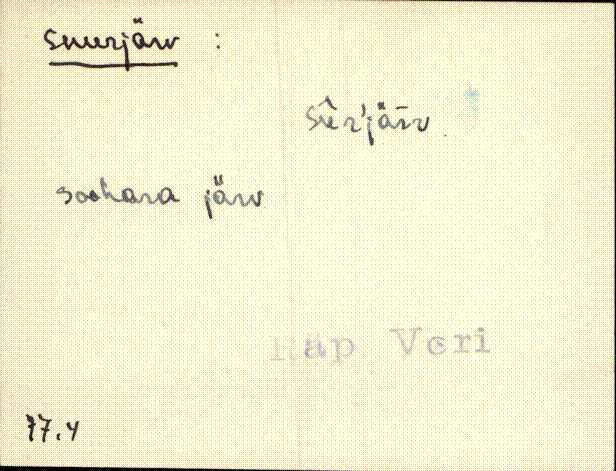 suurjärv :
sûr'jäŕv
sookara järv
Räp Veri
77.4